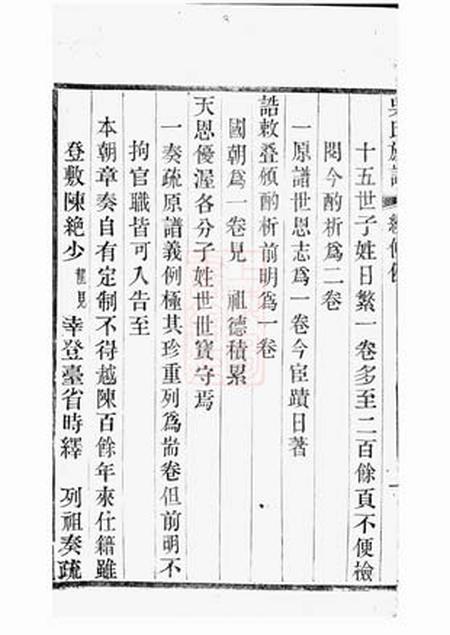 吳氏族譜
十五世子姓日繁一卷多至二百餘頁不便檢
閱今酌析爲二卷
一原譜世恩志爲一卷今宦蹟日著
誥敕叠頒酌析前明爲一卷
國朝爲一卷見 祖德積累
天恩優渥各分子姓世世寶守焉
一奏疏原譜義例極其珍重列爲耑卷但前明不
拘官職皆可入告至
本朝章奏自有定制不得越陳百餘年來仕籍雖
登敷陳絶少 見 幸登臺省時繹 列祖奏疏